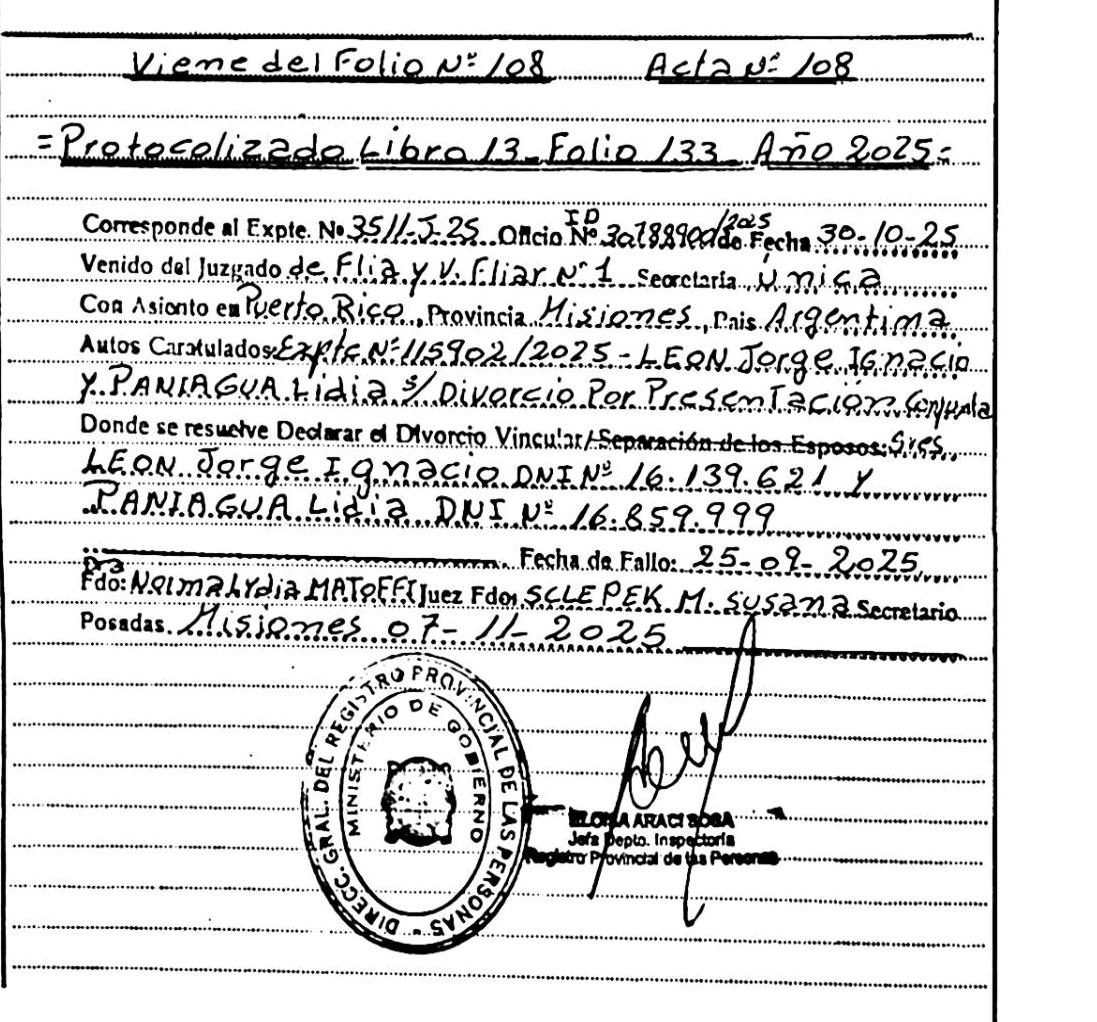 Viene del Folio Nº 108 Acta Nº 108
= Protocolizado Libro 13 - Folio 133 - Año 2025 =
Corresponde al Expte. Nº 3511-J-25 Oficio Nº ID 30788900/2025 de Fecha 30-10-25
Venido del Juzgado de Flia y V. Fliar Nº 1 Secretaría Unica
Con Asiento en Puerto Rico, Provincia Misiones, Pais Argentina
Autos Caratulados: Expte Nº 115902/2025 - LEON Jorge Ignacio
Y PANIAGUA Lidia s/ Divorcio Por Presentación Conjunta
Donde se resuelve Declarar el Divorcio Vincular/Separación de los Esposos: Sres.
LEON Jorge Ignacio DNI Nº 16.139.621 Y
PANIAGUA Lidia DNI Nº 16.859.999
Fecha de Fallo: 25-09-2025
Fdo: Dra Norma Lydia Juez Fdo: SCLEPEK M. Susana Secretario
Posadas Misiones 07-11-2025
DIRECC. GRAL. DEL REGISTRO PROVINCIAL DE LAS PERSONAS -
MINISTERIO DE GOBIERNO
ELOISA ARACI SOSA
Jefa Depto. Inspectoria
Registro Provincial de las Personas